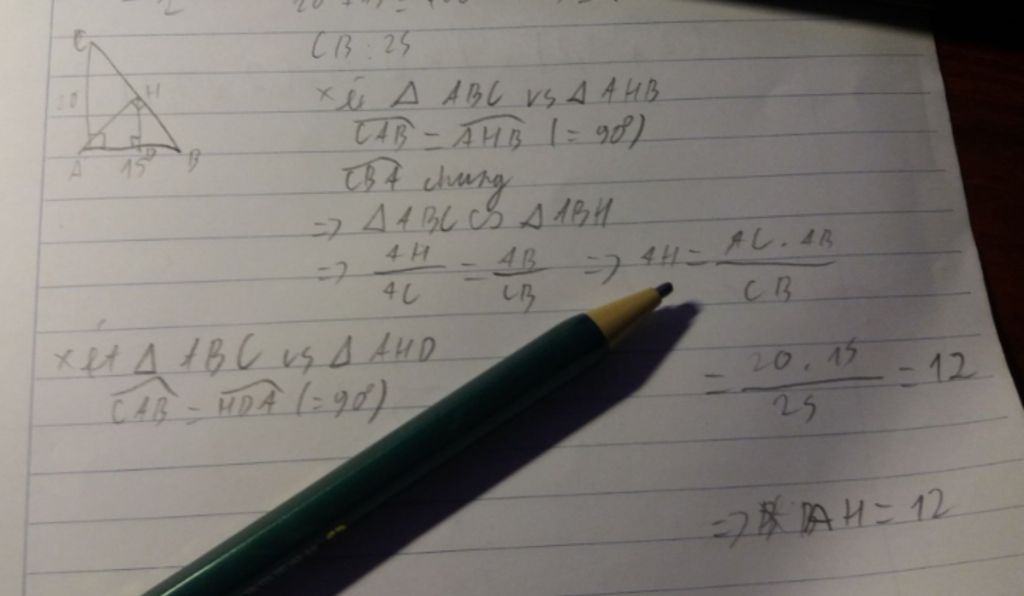 C
20
H
A
15
D
B
CB = 25
xét Δ ABC vs Δ AHB
CAB = AHB (= 90°)
CBA chung
=> Δ ABC ∽ Δ ABH
=> AH/AC = AB/CB => AH = AC . AB / CB
= 20 . 15 / 25 = 12
xét Δ ABC vs Δ AHD
CAB = HDA (= 90°)
=> AH = 12